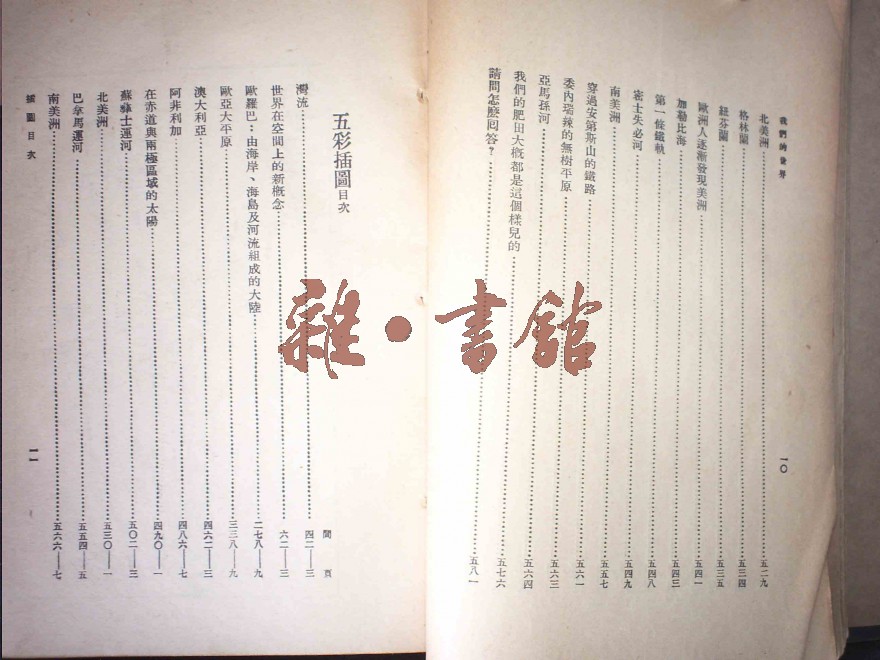 我們的世界
一〇
北美洲……五二九
格林蘭……五三四
紐芬蘭……五三五
歐洲人逐漸發現美洲……五四一
加勒比海……五四三
第一條鐵軌……五四八
密士失必河……五四九
南美洲……五五七
穿過安第斯山的鐵路……五六一
委內瑞辣的無樹平原……五六三
亞馬孫河……五六四
我們的肥田大概都是這個樣兒的……五七六
請問怎麼回答？……五八一
五彩插圖目次
間頁
灣流……四二——三
世界在空間上的新概念……六二——三
歐羅巴：由海岸、海島及河流組成的大陸……二七八——九
歐亞大平原……三三八——九
澳大利亞……四六二——三
阿非利加……四八六——七
在赤道與兩極區域的太陽……四九〇——一
蘇彝士運河……五〇二——三
北美洲……五三〇——一
巴拿馬運河……五五四——五
南美洲……五六六——七
插圖目次
一一
雜·書館